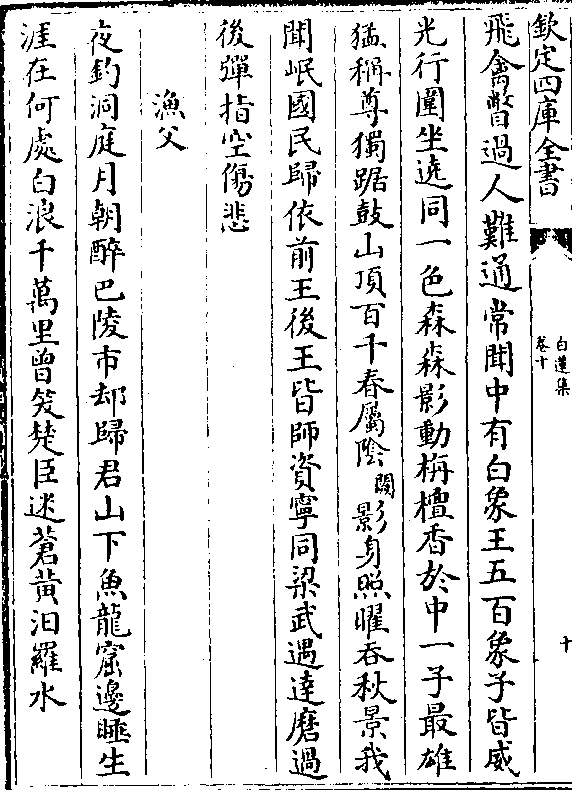 欽定四庫全書
白蓮集
卷十
十
飛禽瞥過人難通常聞中有白象王五百象子皆威
光行圍坐遶同一色森森影動栴檀香於中一子最雄
猛稱尊獨踞鼓山頂百千春屬陰闕影身照曜吞秋景我
聞岷國民歸依前王後王皆師資寧同梁武遇達磨過
後彈指空傷悲
漁父
夜釣洞庭月朝醉巴陵市却歸君山下魚龍窟邊睡生
涯在何處白浪千萬里曾笑楚臣迷蒼黄汩羅水